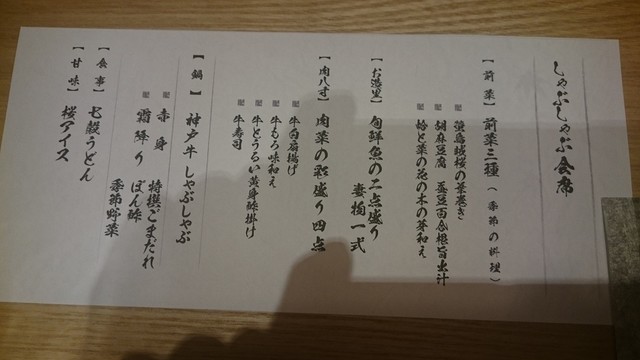 しゃぶしゃぶ会席
【前菜】 前菜三種(季節の料理)
胡麻豆腐 蚕豆百合根旨出汁
蛤と菜の花の木の芽和え
【お造里】 旬鮮魚の二点盛り
妻物一式
【肉八寸】 肉菜の彩盛り四点
牛もろみ味和え
牛とうるい黄身酢掛け
牛寿司
【鍋】 神戸牛しゃぶしゃぶ
赤身 特撰ごまだれ
霜降り ぽん酢
季節野菜
【食事】 七穀うどん
【甘味】 桜アイス